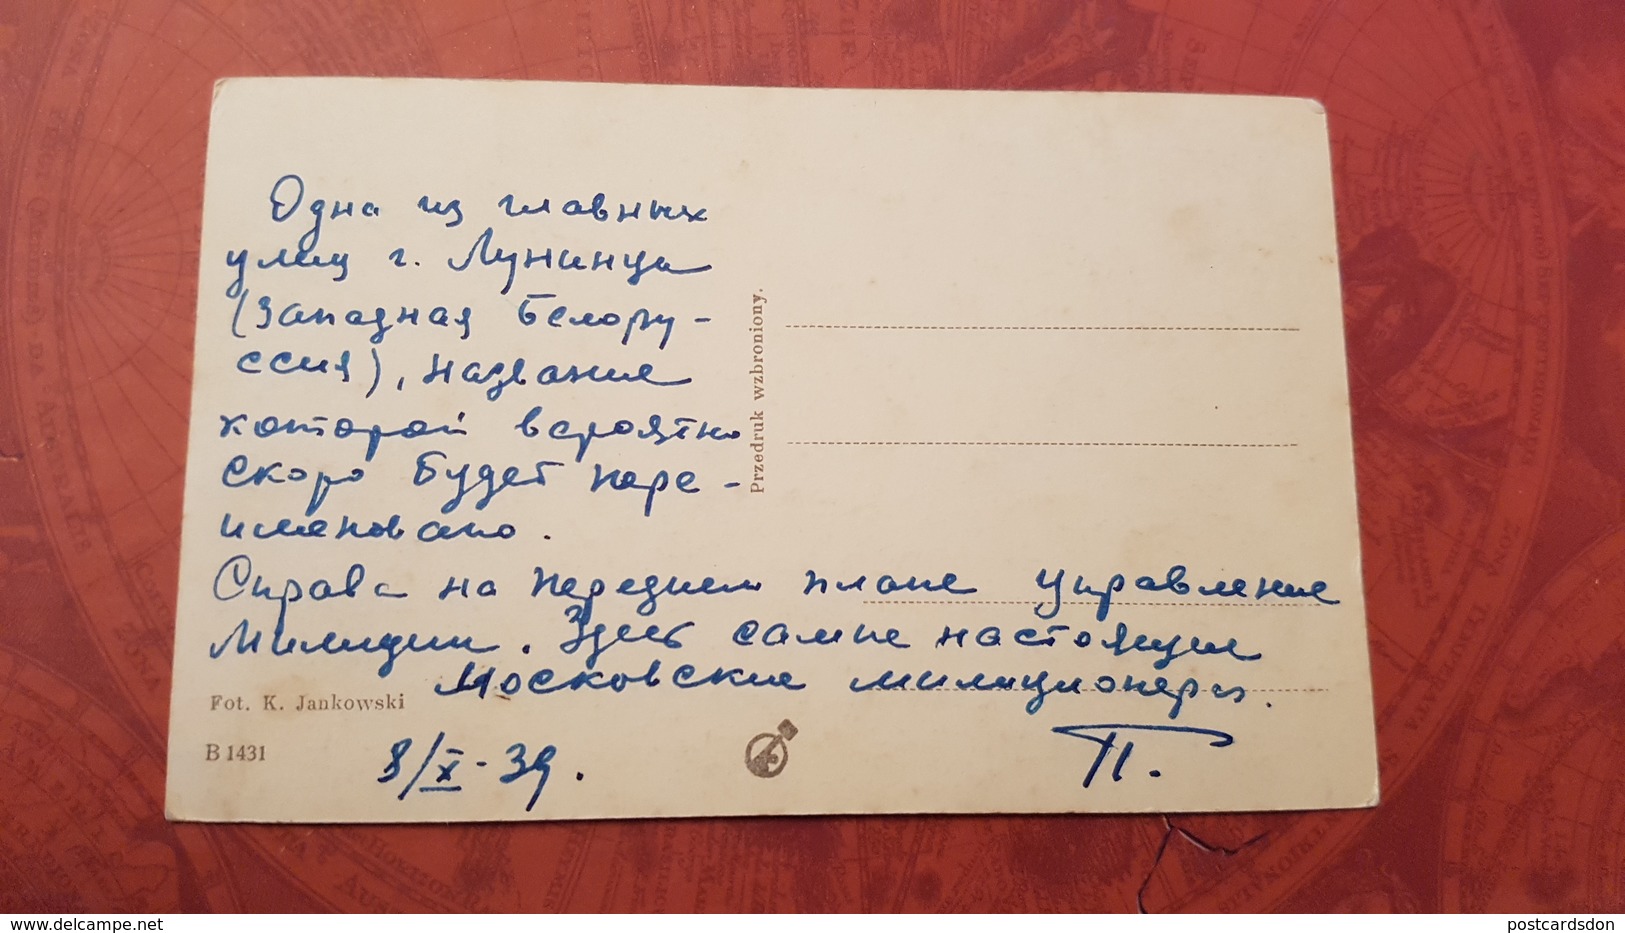 Одна из главных
улиц г. Лунинца
(Западная Белору-
ссия), название
которой вероятно
скоро будет пере-
именовано.
Справа на переднем плане управление
Милиции. Здесь самые настоящие
Московские милиционеры.
8/X-39.
П.
Przedruk wzbroniony.
Fot. K. Jankowski
B 1431
www.delcampe.net
postcardsdon